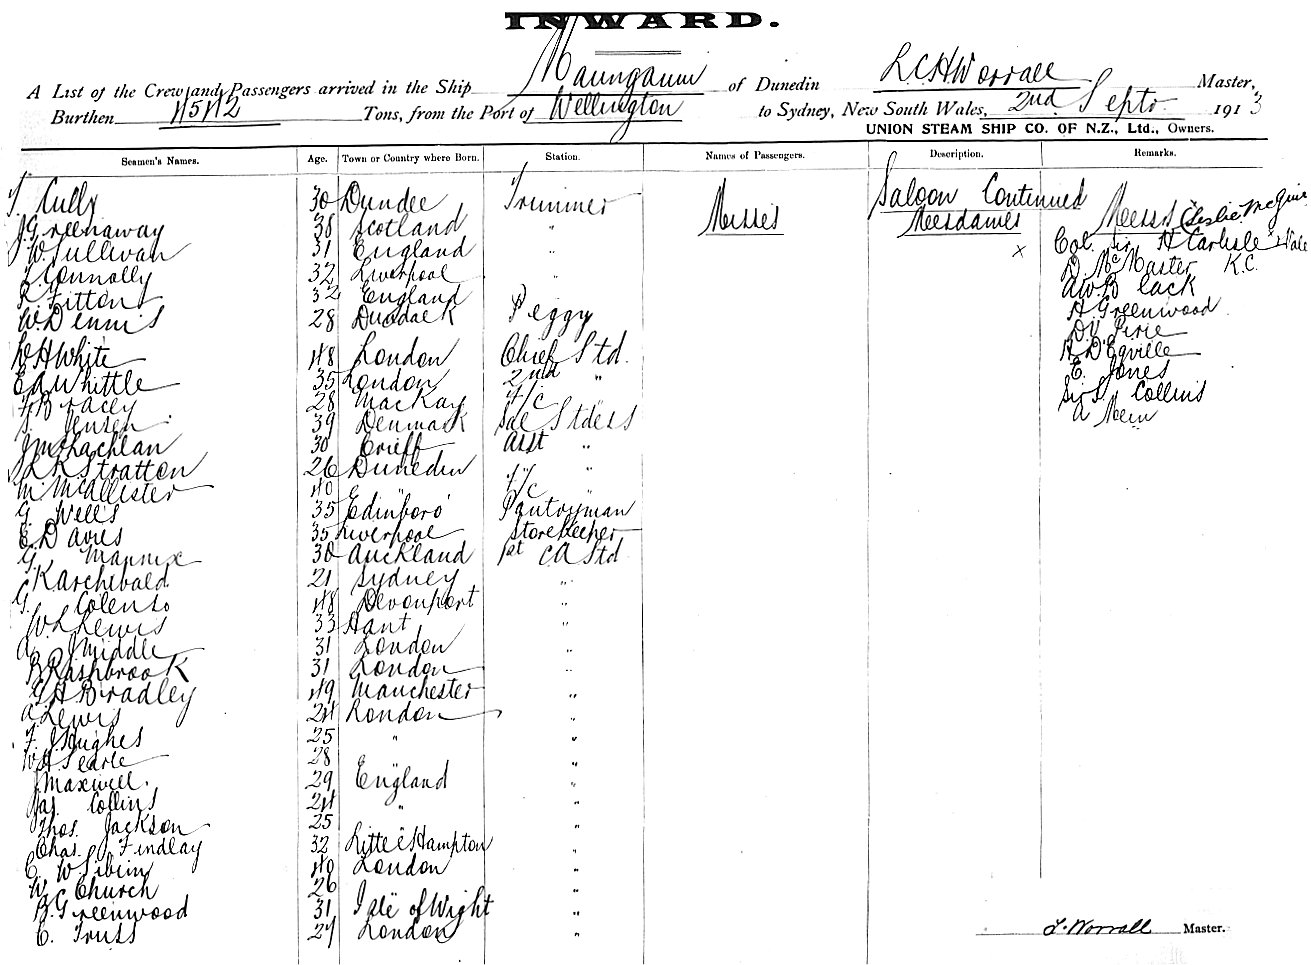 INWARD.
A List of the Crew and Passengers arrived in the Ship Maunganui of Dunedin L C H Worrall Master,
Burthen Tons, from the Port of Wellington to Sydney, New South Wales, 2nd Septr 1913
UNION STEAM SHIP CO. OF N.Z., Ltd., Owners.
Seamen's Names. Age. Town or Country where Born. Station. Names of Passengers. Description. Remarks.
Saloon Continued
Misses Mesdames Messrs Leslie McGuire
T. Cully 30 Dundee Trimmer
J Greenaway 38 Scotland "
J W Sullivan 31 England " x Col. Sir H Carlisle
T Connolly 32 Liverpool " D McMaster K.C.
R Fitton 32 England
W Dennis 28 Dundalk Peggy H Greenwood
D V Pirie
D H White 48 London Chief Std. H D'Egville
E A Whittle 35 London 2nd " E. Jones
F Bracey 28 Mackay F/C Sir S Collins
S. Jensen 39 Denmark Sal Stdess A
J McLachlan 30 Crieff Asst "
L K Stratton 26 Dunedin "
M McAllister 40 " F/C "
G. Wells 35 Edinboro' Pantryman
E Davies 35 Liverpool Storekeeper
G. Mannix 30 Auckland 1st CA Std
K Archibald 21 Sydney "
G. Colenso 48 Devonport "
W L Lewis 33 Hant "
A J Middle 31 London "
B Rashbrook 31 London "
G H Bradley 49 Manchester "
A Lewis 24 London "
F. J Hughes 25 " "
W H Searle 28 "
J Maxwell. 29 England "
Jas. Collins 24 " "
Thos. Jackson 25 "
Chas. Findlay 32 Little Hampton "
C. W 40 London "
W Church 26 " "
B. Greenwood 31 Isle of Wight "
C. Truss 24 London "
L. Worrall Master.